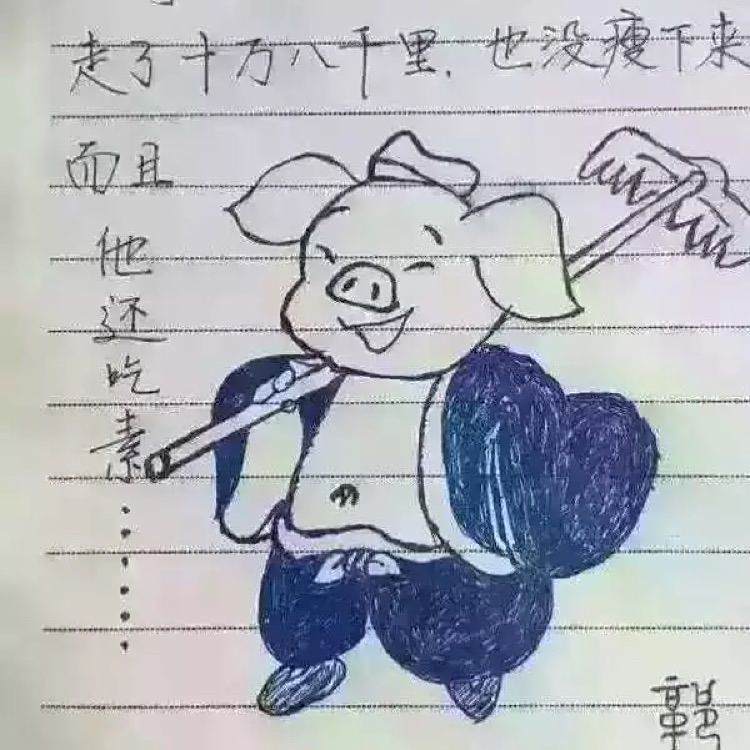 走了十万八千里，也没瘦下来
而且
他
还
吃
素
......